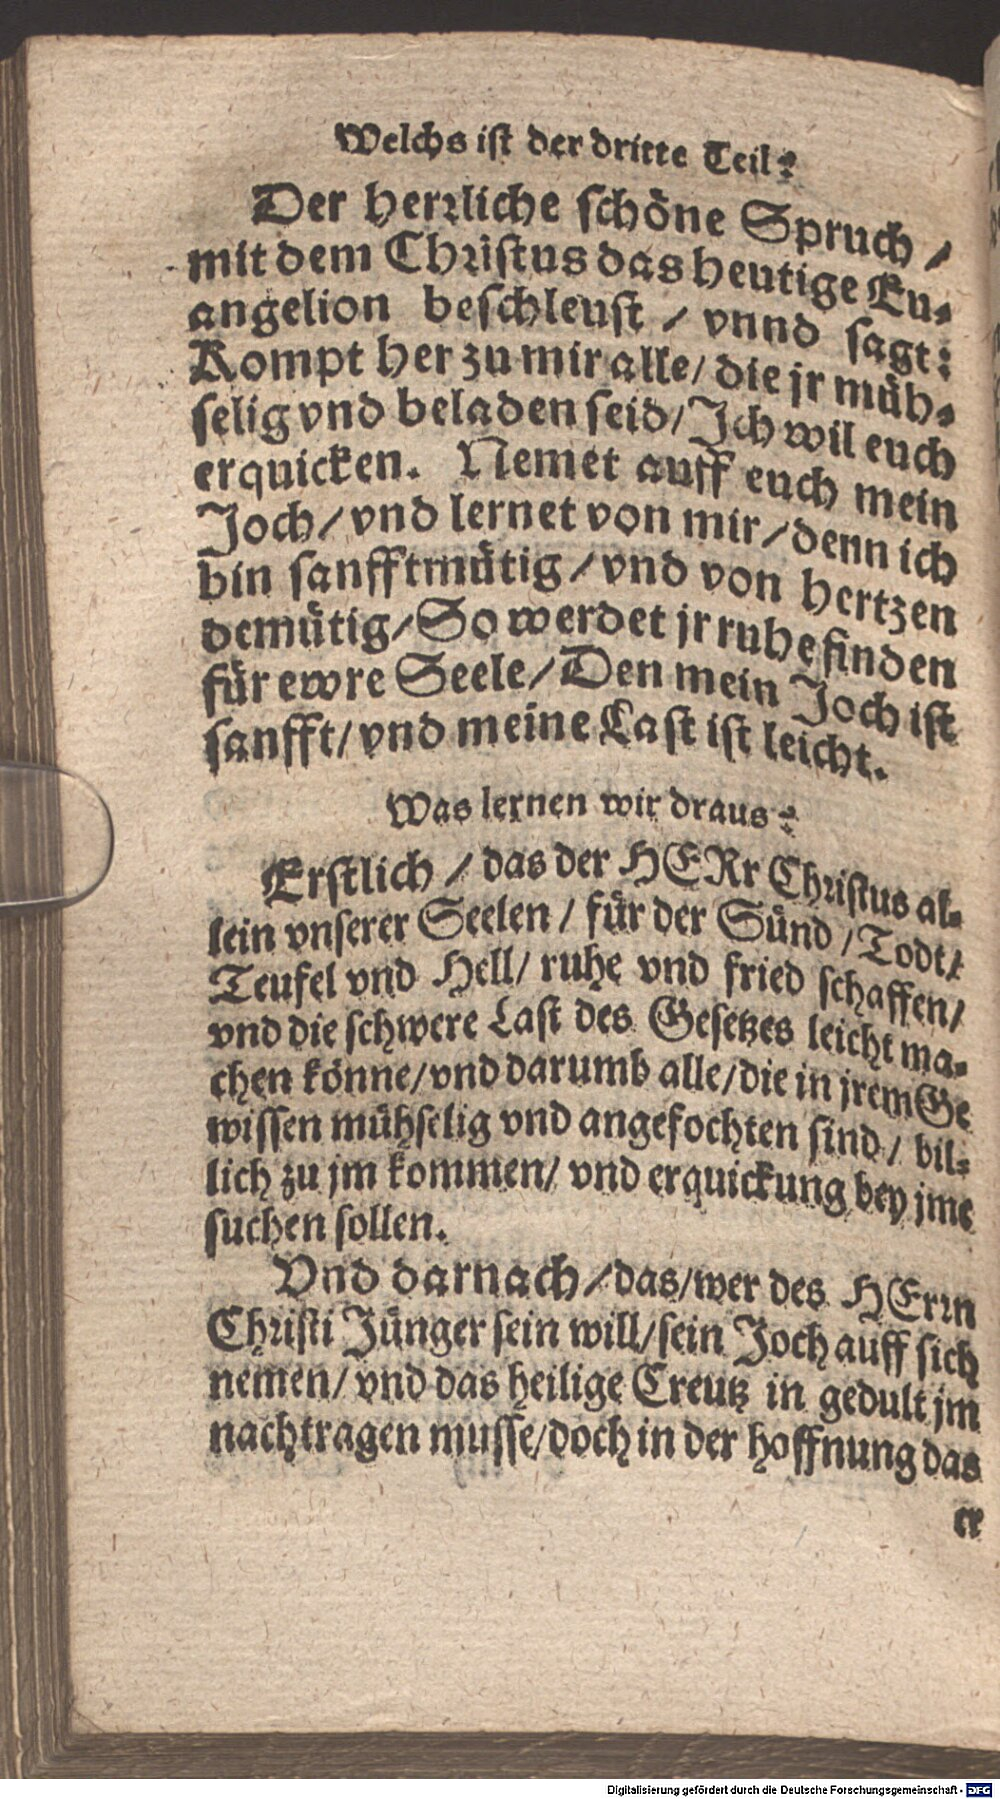 Welchs iſt der dritte Teil?
Der herꝛliche ſchöne Spruch /
mit dem Chꝛiſtus das heutige Eu⸗
angelion beſchleuſt / vnnd ſagt:
Kompt her zu mir alle / die jr müh⸗
ſelig vnd beladen ſeid / Ich wil euch
erquicken. Nemet auff euch mein
Joch / vnd lernet von mir / denn ich
bin ſanfftmütig / vnd von hertzen
demütig / So werdet jr ruhe finden
für ewre Seele / Den mein Joch iſt
ſanfft / vnd meine Laſt iſt leicht.
Was lernen wir draus?
Erſtlich / das der HERr Chꝛiſtus al⸗
lein vnſerer Seelen / für der Sünd / Todt /
Teufel vnd Hell / ruhe vnd fried ſchaffen /
vnd die ſchwere Laſt des Geſetzes leicht ma⸗
chen könne / vnd darumb alle / die in jrem Ge
wiſſen mühſelig vnd angefochten ſind / bil⸗
lich zu jm kommen / vnd erquickung bey jme
ſuchen ſollen.
Vnd darnach / das / wer des HErꝛn
Chꝛiſti Jünger ſein will / ſein Joch auff ſich
nemen / vnd das heilige Creutz in gedult jm
nachtragen muſſe / doch in der hoffnung das
er
Digitalisierung gefördert durch die Deutsche Forschungsgemeinschaft - DFG